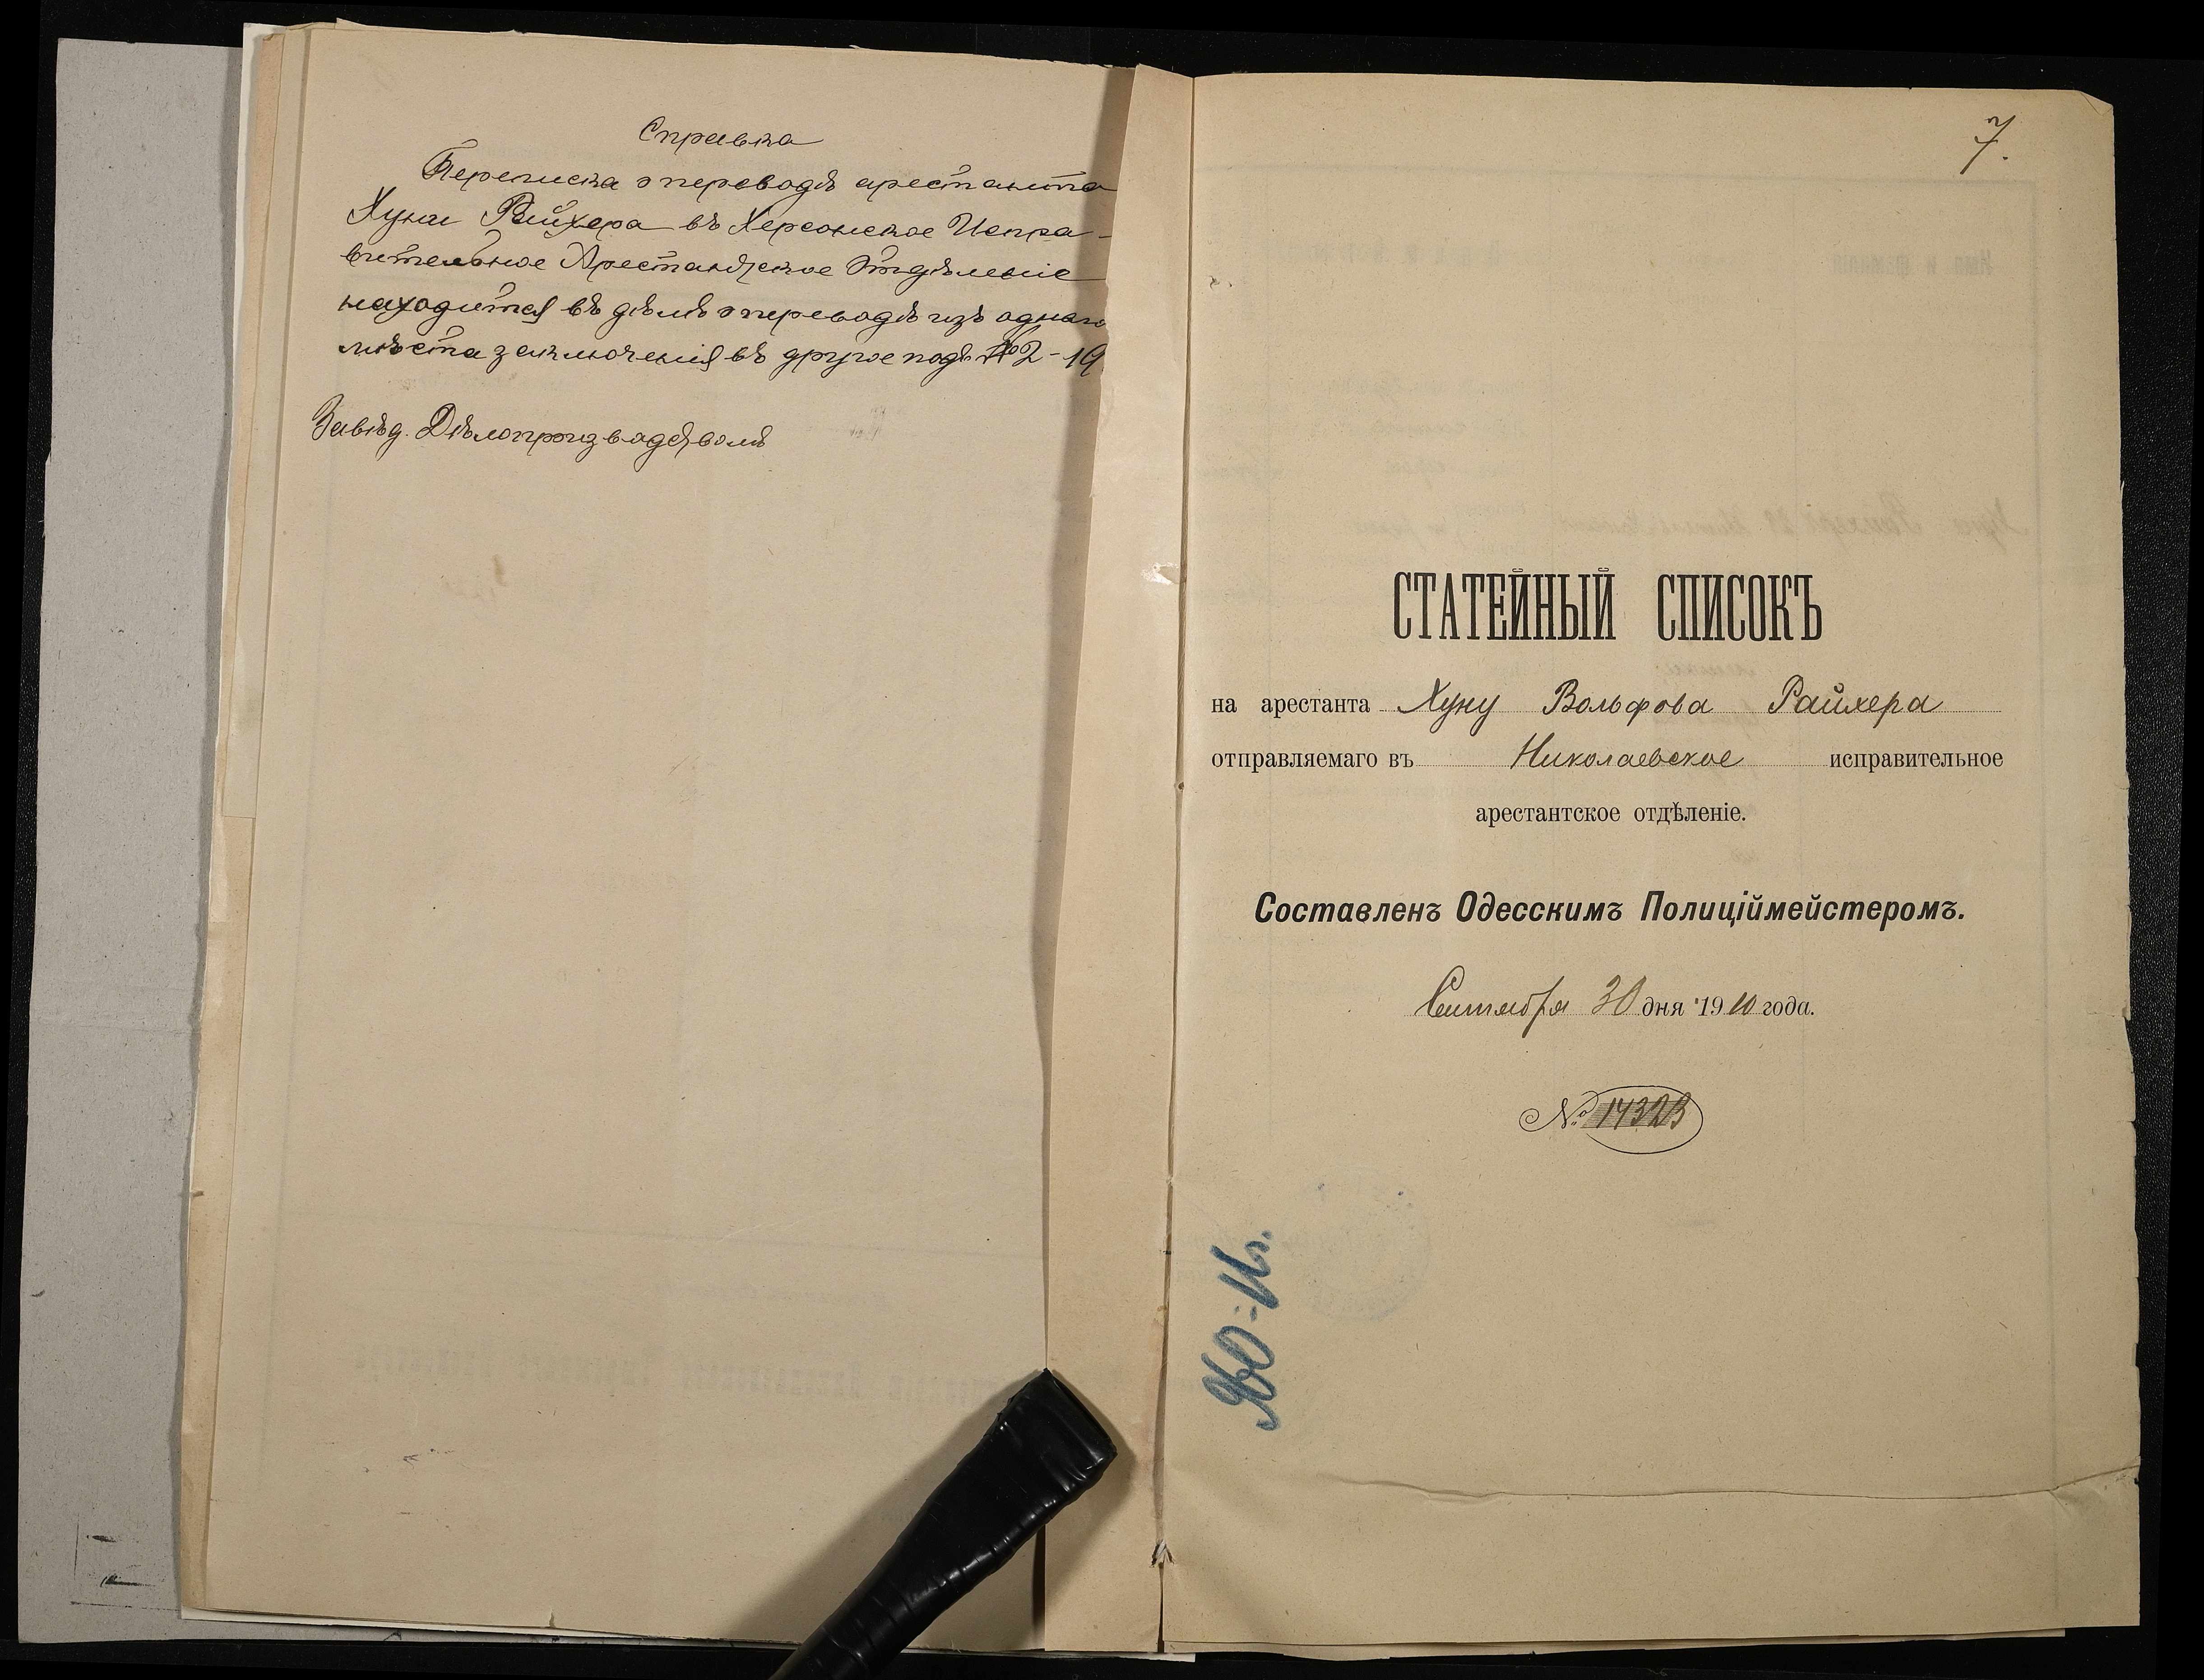 Справка
Переписка о переводѣ арестанта
Хуни Райхера въ Херсонское Испра-
вительное Арестантское Отдѣленіе
находится въ дѣлѣ о переводѣ изъ одного
мѣста заключенія въ другое подъ № 2-19
Завѣд. Дѣлопроизводствомъ
7.
СТАТЕЙНЫЙ СПИСОКЪ
на арестанта Хуну Вольфова Райхера
отправляемаго въ Николаевское исправительное
арестантское отдѣленіе.
Составленъ Одесскимъ Полиціймейстеромъ.
Сентября 30 дня 1910 года.
№ 14323
960-11г.